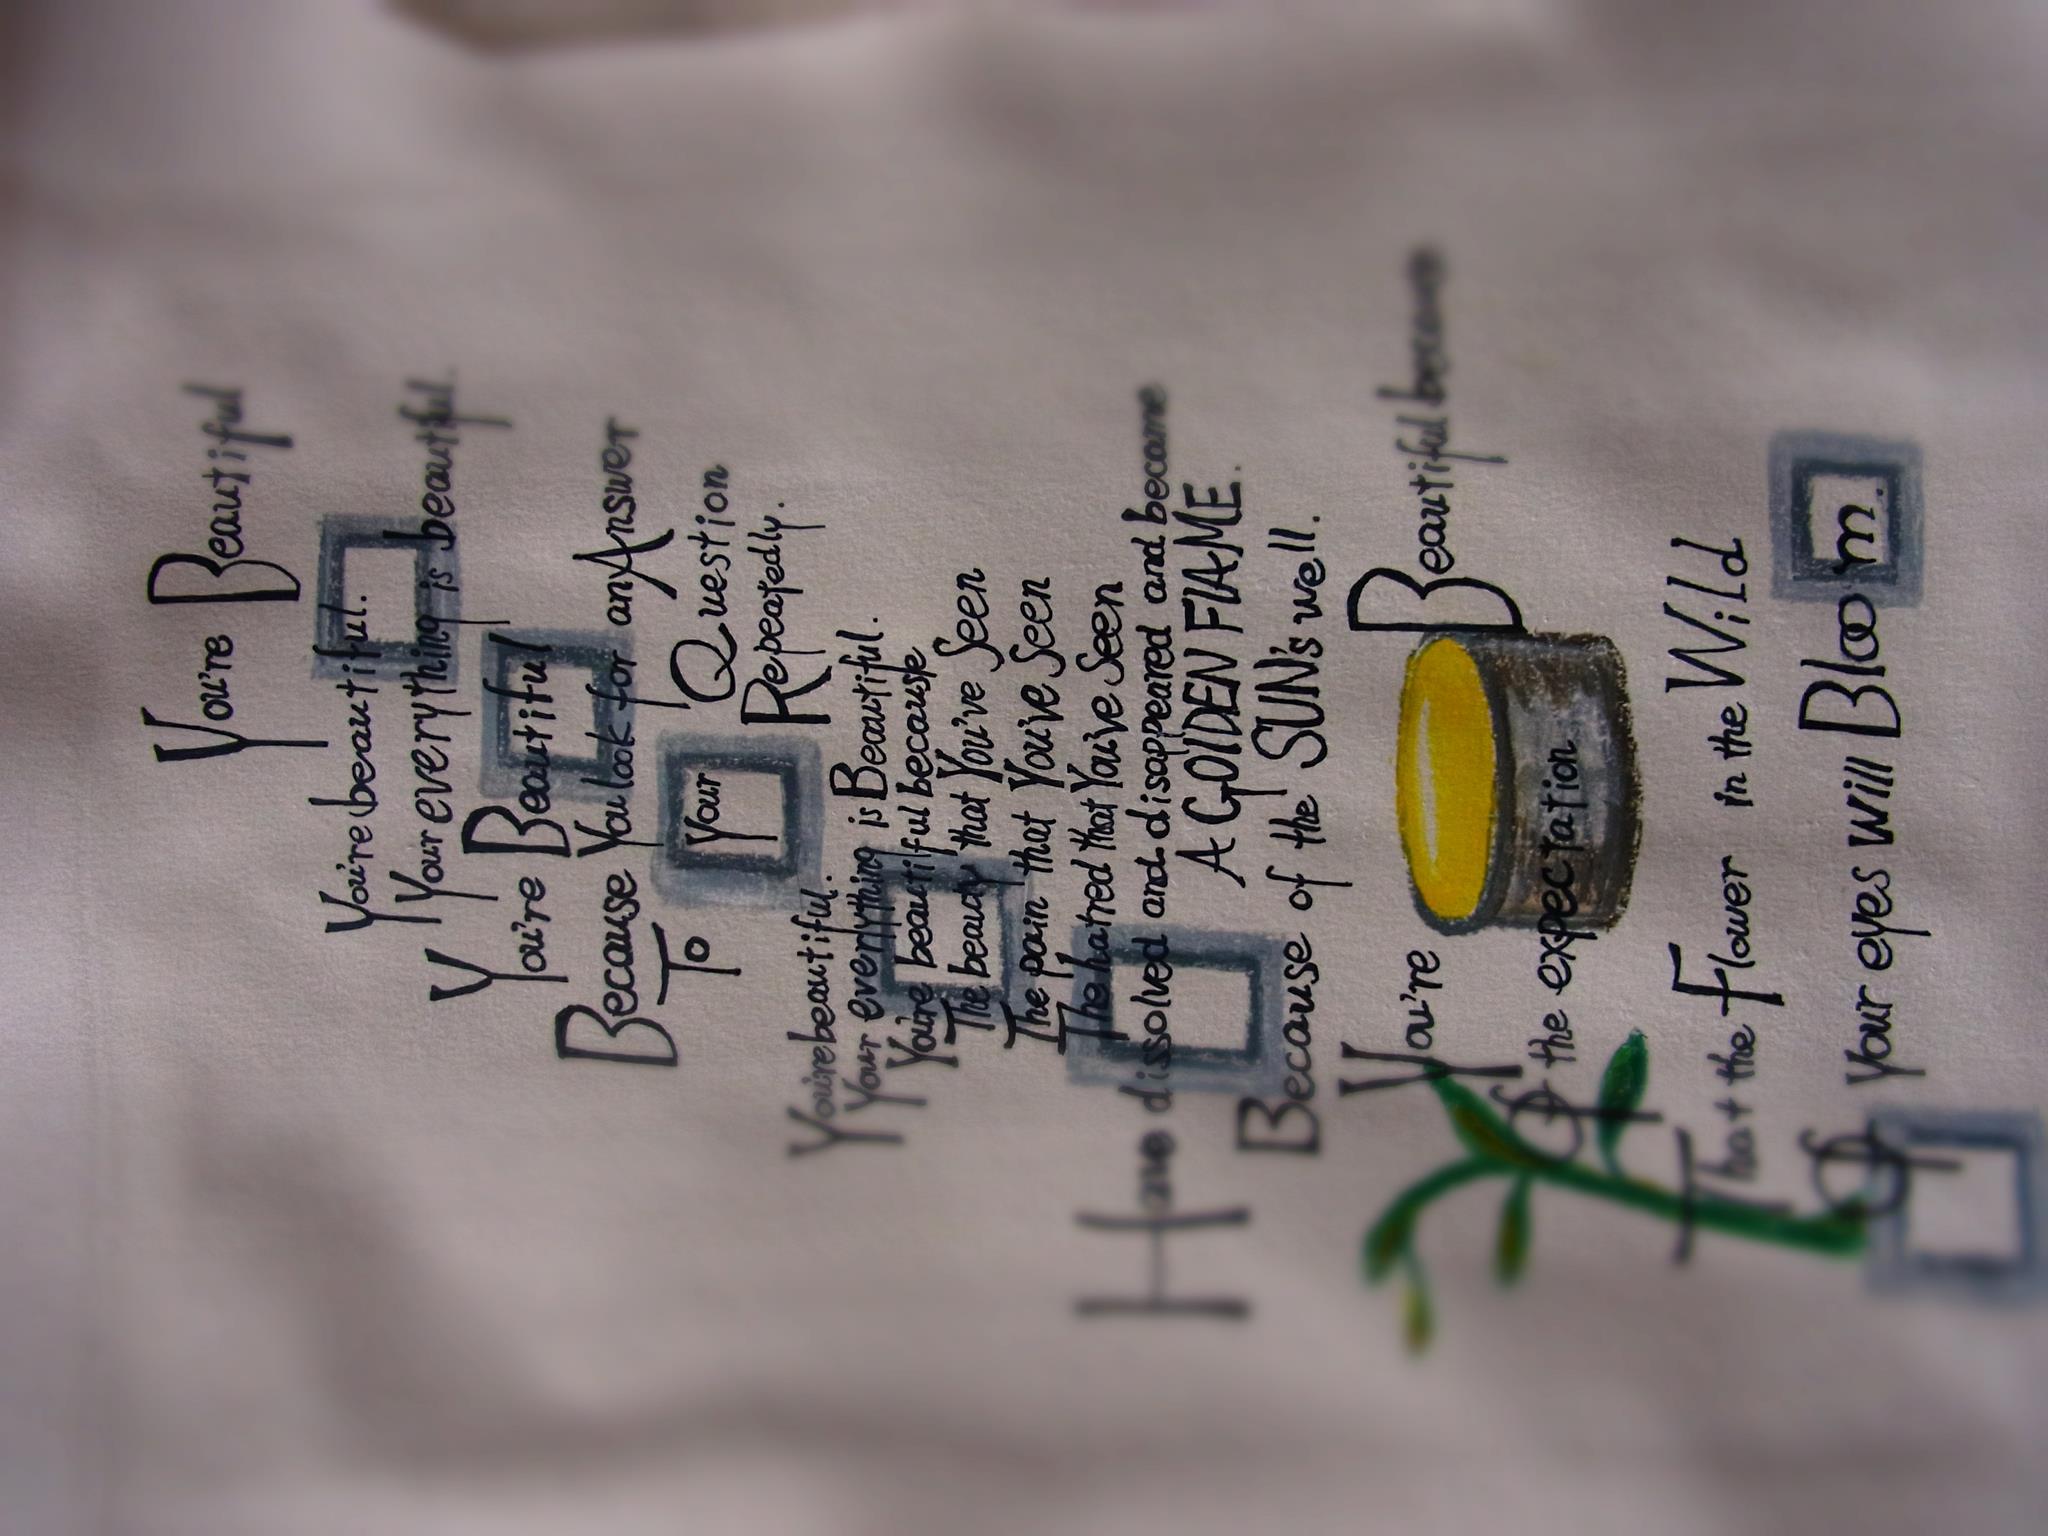 You're Beautiful
You're beautiful.
Your everything is beautiful.
You're Beautiful
Because You look for an Answer
To Your Question
Repeatedly.
You're beautiful.
Your everything is Beautiful.
You're beautiful because
The beauty that You've Seen
The pain that You've Seen
The hatred that You've Seen
Have dissolved and disappeared and became
A GOLDEN FLAME.
Because of the SUN's well.
You're Beautiful because
Of the expectation
That the Flower in the Wild
Of Your eyes will Bloom.